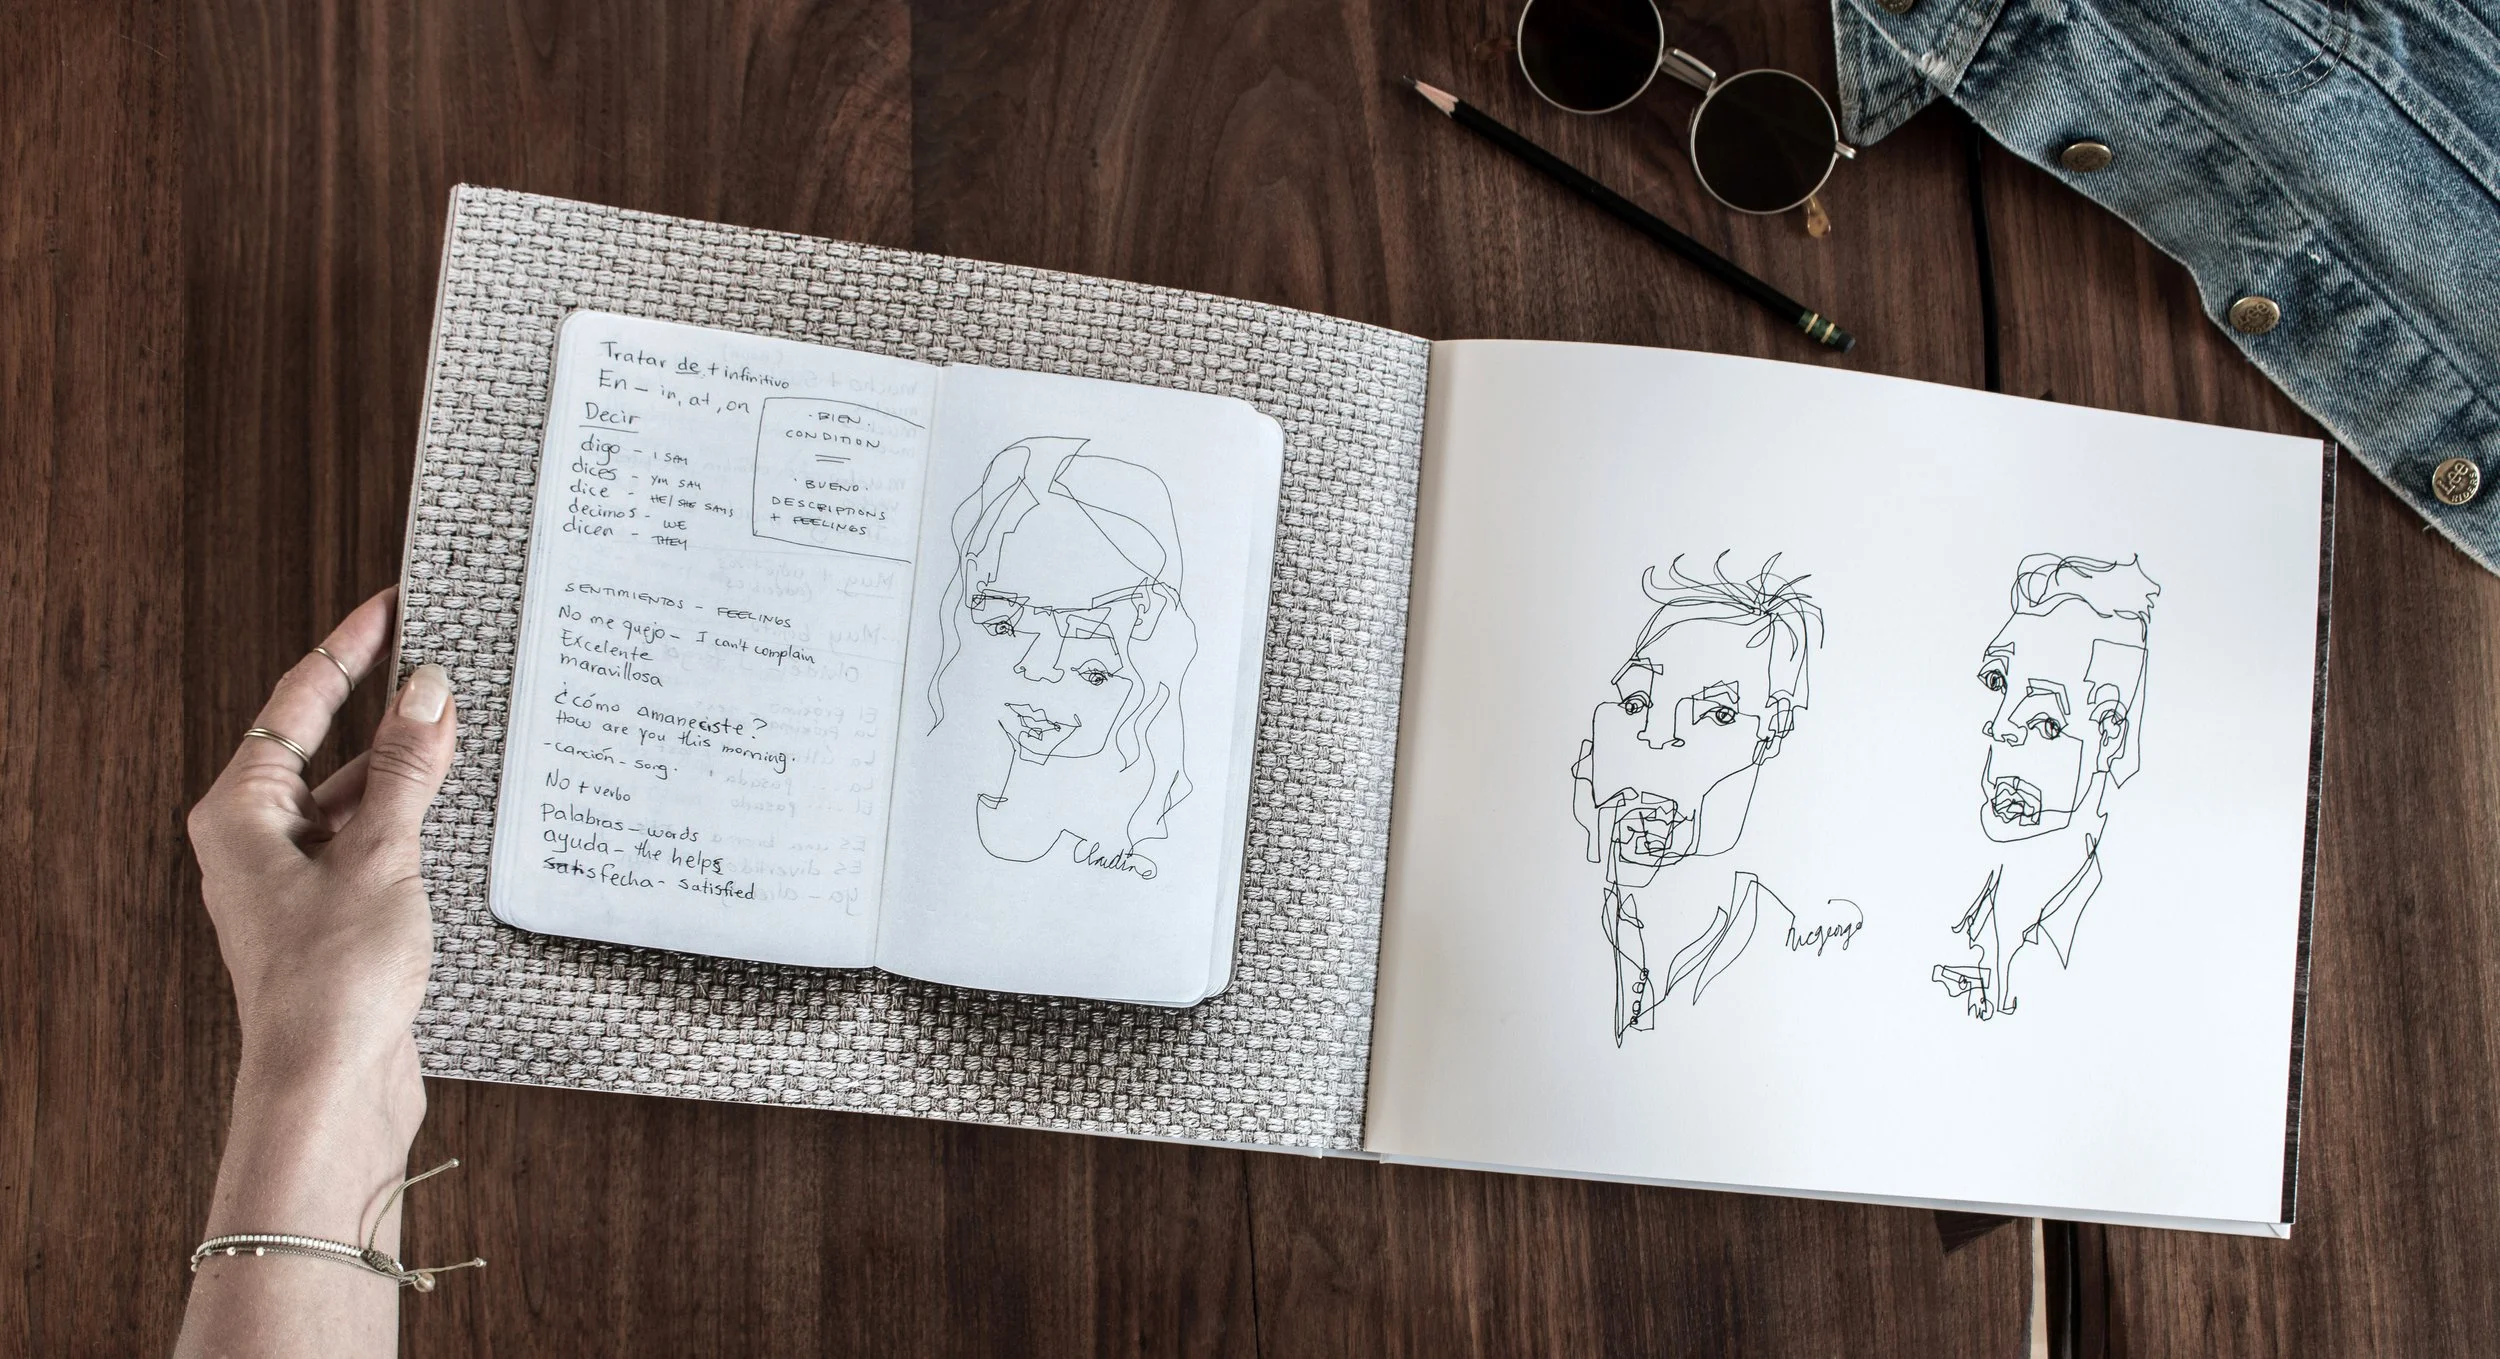 Tratar de + infinitivo
En – in, at, on
Decir
digo – I SAY
dices – YOU SAY
dice – HE/SHE SAYS
decimos – WE
dicen – THEY
· BIEN ·
CONDITION
· BUENO ·
DESCRIPTIONS
+ FEELINGS
SENTIMIENTOS – FEELINGS
No me quejo – I can't complain
Excelente
maravillosa
¿cómo amaneciste?
How are you this morning.
- canción – song.
No + verbo
Palabras – words
ayuda – the helps
satisfecha – satisfied
Claudine
Lee
RIDERS